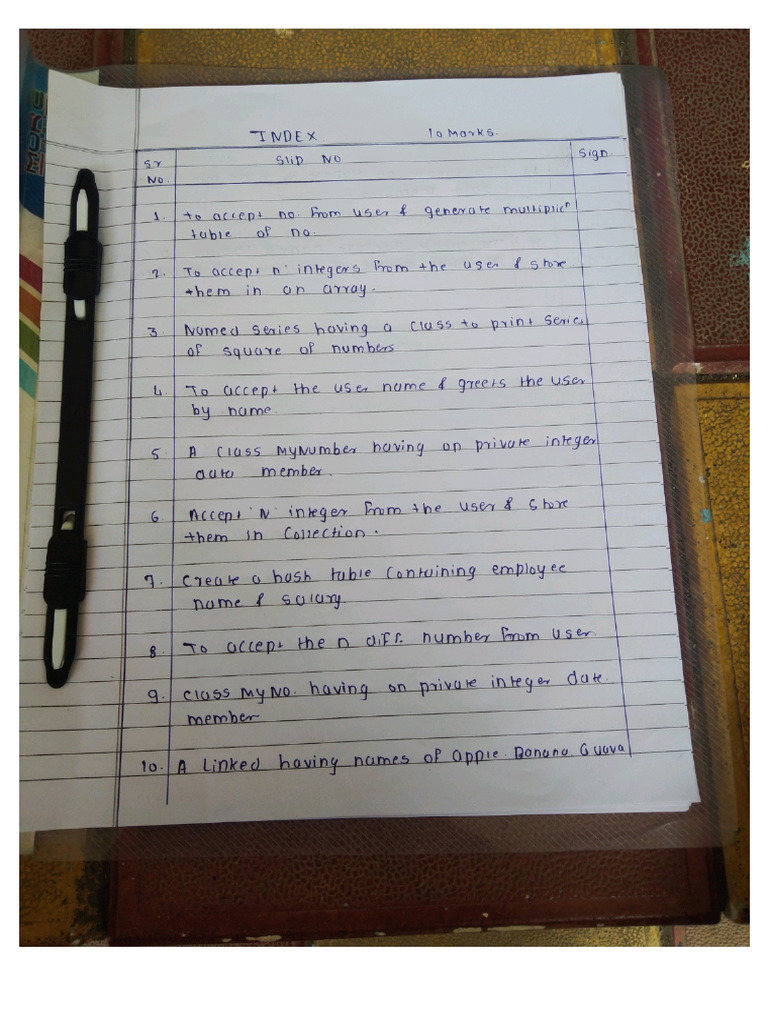 INDEX 10 Marks.
Sr No. Slip No Sign.
1. To accept no. from user & generate multiplicn
table of no.
2. To accept n' integers from the user & store
them in an array.
3. Named series having a class to print series
of square of numbers
4. To accept the user name & greets the user
by name.
5. A class MyNumber having on private integer
data member.
6. Accept 'N' integer from the user & store
them in collection.
7. Create a hash table containing employee
name & salary.
8. To accept the n diff. number from user.
9. class MyNo. having on private integer date
member.
10. A Linked having names of apple Banana Guava